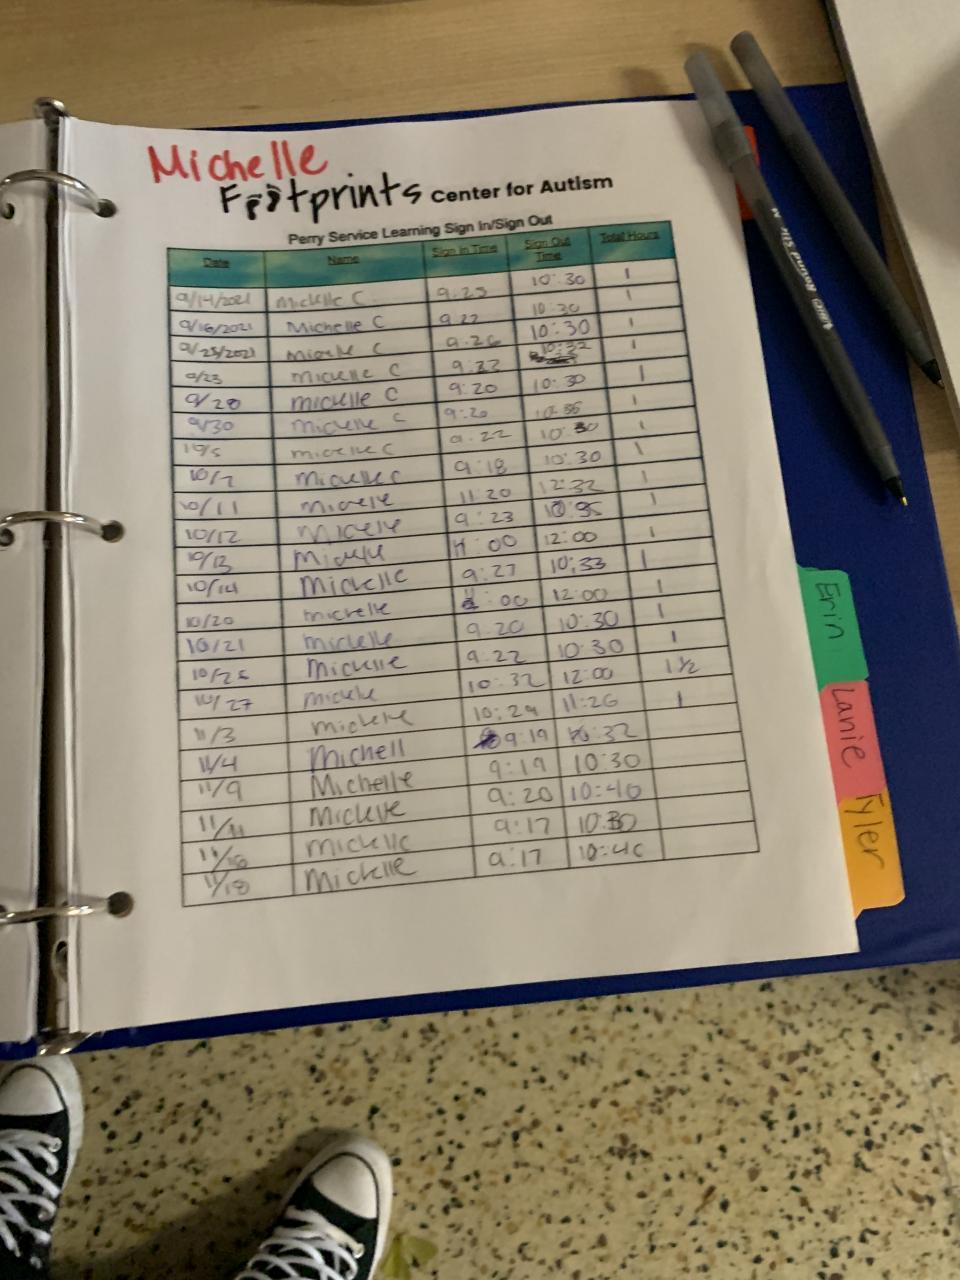 Michelle
Footprints Center for Autism
Perry Service Learning Sign In/Sign Out
Date Name Sign In Time Sign Out Time Total Hours
9/14/2021 Michelle C. 9:25 10:30 1
9/16/2021 Michelle C 9:22 10:30 1
9/25/2021 Michelle C 9:26 10:30 1
9/23 Michelle C 10:32 1
9/28 Michelle C 9:20 10:30 1
9/30 Michelle C 9:20 1
10/5 Michelle C 9:22 10:30 1
10/7 Michelle C 9:18 10:30 1
10/11 Michelle 11:20 12:32 1
10/12 Michelle 9:23 1
10/13 Michelle 11:00 12:00 1
10/14 Michelle 9:27 10:33 1
10/20 Michelle 11:00 12:00 1
10/21 Michelle 9:20 10:30 1
10/25 Michelle 9:22 10:30 1
10/27 Michelle 10:32 12:00 1 1/2
11/3 Michelle 10:29 11:26 1
11/4 Michell 9:19 10:32
11/9 Michelle 9:19 10:30
11/11 Michelle 9:20 10:40
11/16 Michelle 9:17 10:30
11/18 Michelle 9:17 10:40
Erin
Lanie
Tyler
Round Stic M